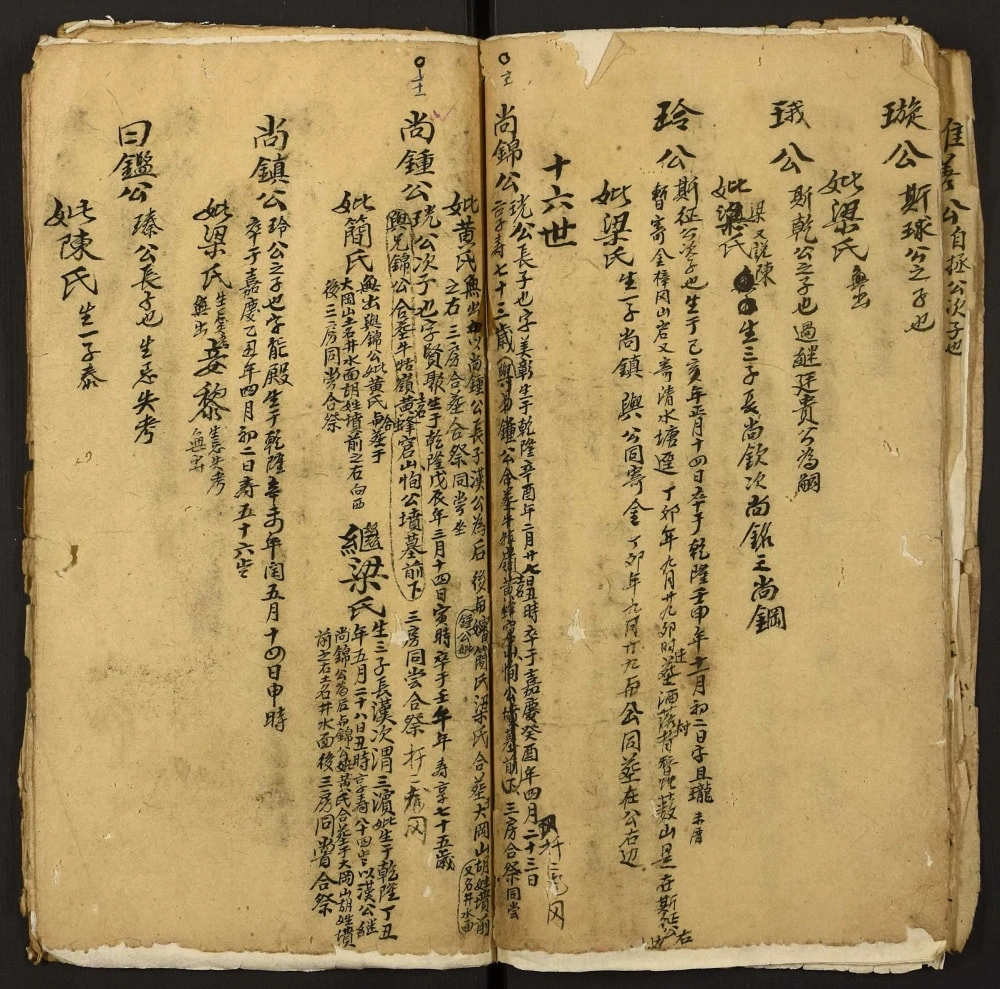 公自拯公次子也
璇公 斯球公之子也
妣梁氏 無出
珴公 斯乾公之子也過継廷貴公為嗣
妣梁氏 梁又説陳 生三子長尚欽次尚銘三尚鋼
玲公 斯征公次子也生于己亥年正月十四日卒于乾隆壬申年十二月初二日子且瓏未曆
暫寄金樟冈山右又寄清水塘邊丁卯年九月廿九卯時塟酒落村督蚬薮山是在斯征公右边
妣梁氏 生一子尚鎮 與公同寄金丁卯年九月廿九与公同塟在公右边
十六世
尚錦公 珖公長子也字美彰生于乾隆辛酉年二月廿七丑時卒于嘉慶癸酉年四月二十三日
享寿七十三歲與弟鐘公合塟牛牯嶺黄蜂窩山恂公墳墓前下三房合祭同嘗
妣黄氏 無出以尚鍾公長子漢公為后後与嬸簡氏梁氏合塟大岡山胡姓墳前
鍾公妣
又名井水面
之右三房合塟合祭同嘗坐
尚鍾公 珖公次子也字賢聚生于乾隆戊辰年三月十四日寅時卒于壬午年寿享七十五歲
與兄錦公合塟牛牯嶺黄蜂窩山恂公墳墓前下三房同嘗合祭
妣簡氏 無出與錦公妣黄氏合塟于
大岡山土名井水面胡姓墳前之右向西
後三房同嘗合祭
繼梁氏 生三子長漢次渭三濱妣生于乾隆丁丑
年五月二十八日丑時享寿八十四岁以漢公継
尚錦公為后与錦公妣黄氏合塟于大岡山胡姓墳
前之右土名井水面後三房同嘗合祭
尚鎮公 玲公之子也字龍殿生于乾隆辛未年闰五月十四日申時
卒于嘉慶乙丑年四月初二日寿五十六岁
妣梁氏 無出 妾黎 生忌失考 無出
曰鑑公 瑧公長子也生忌失考
妣陳氏 生一子泰